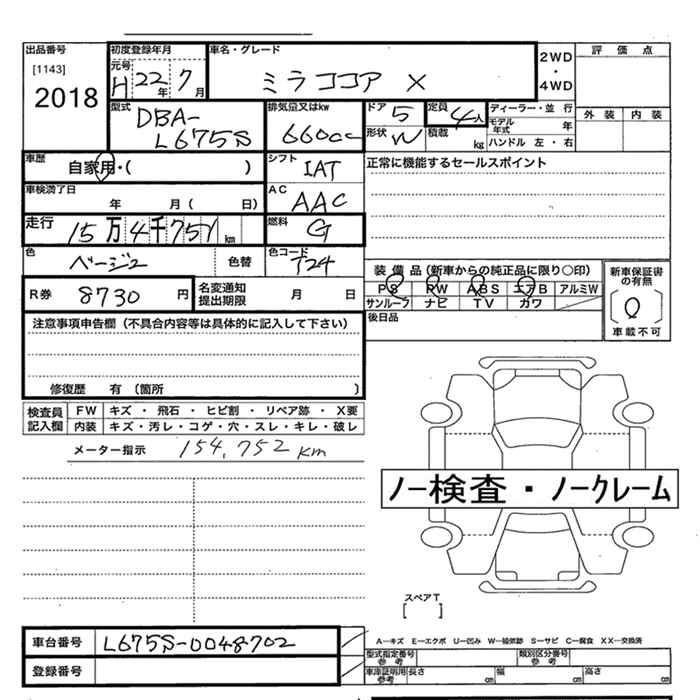 出品番号
[1143]
2018
初度登録年月
元号
H 22年 7月
車名・グレード
ミラココア X
2WD
・
4WD
評価点
外装 内装
型式
DBA-
L675S
排気量又はkw
660cc
ドア 5
形状 W
定員 4人
積載 kg
ディーラー・並行
モデル年式 年
ハンドル 左・右
車歴
自家用・( )
シフト
IAT
正常に機能するセールスポイント
車検満了日
年 月( 日)
AC
AAC
走行
15万4千757km
燃料
G
色
ベージュ
色替
色コード
T24
装備品(新車からの純正品に限り○印)
PS PW ABS エアB アルミW
サンルーフ ナビ TV カワ
新車保証書の有無
車載不可
後日品
R券 8730円
名変通知
提出期限
月 日
注意事項申告欄(不具合内容等は具体的に記入して下さい)
修復歴 有 (箇所 )
検査員
記入欄
FW キズ ・ 飛石 ・ ヒビ割 ・ リペア跡 ・ X要
内装 キズ・汚レ・コゲ・穴・スレ・キレ・破レ
メーター指示 154,752km
ノー検査・ノークレーム
スペアT
[ ]
車台番号 L675S-0048702
登録番号
A-キズ E-エクボ U-凹ミ W-補修跡 S-サビ C-腐食 XX-交換済
型式指定番号
参考
類別区分番号
参考
車庫証明用
参考
長さ cm 幅 cm 高さ cm